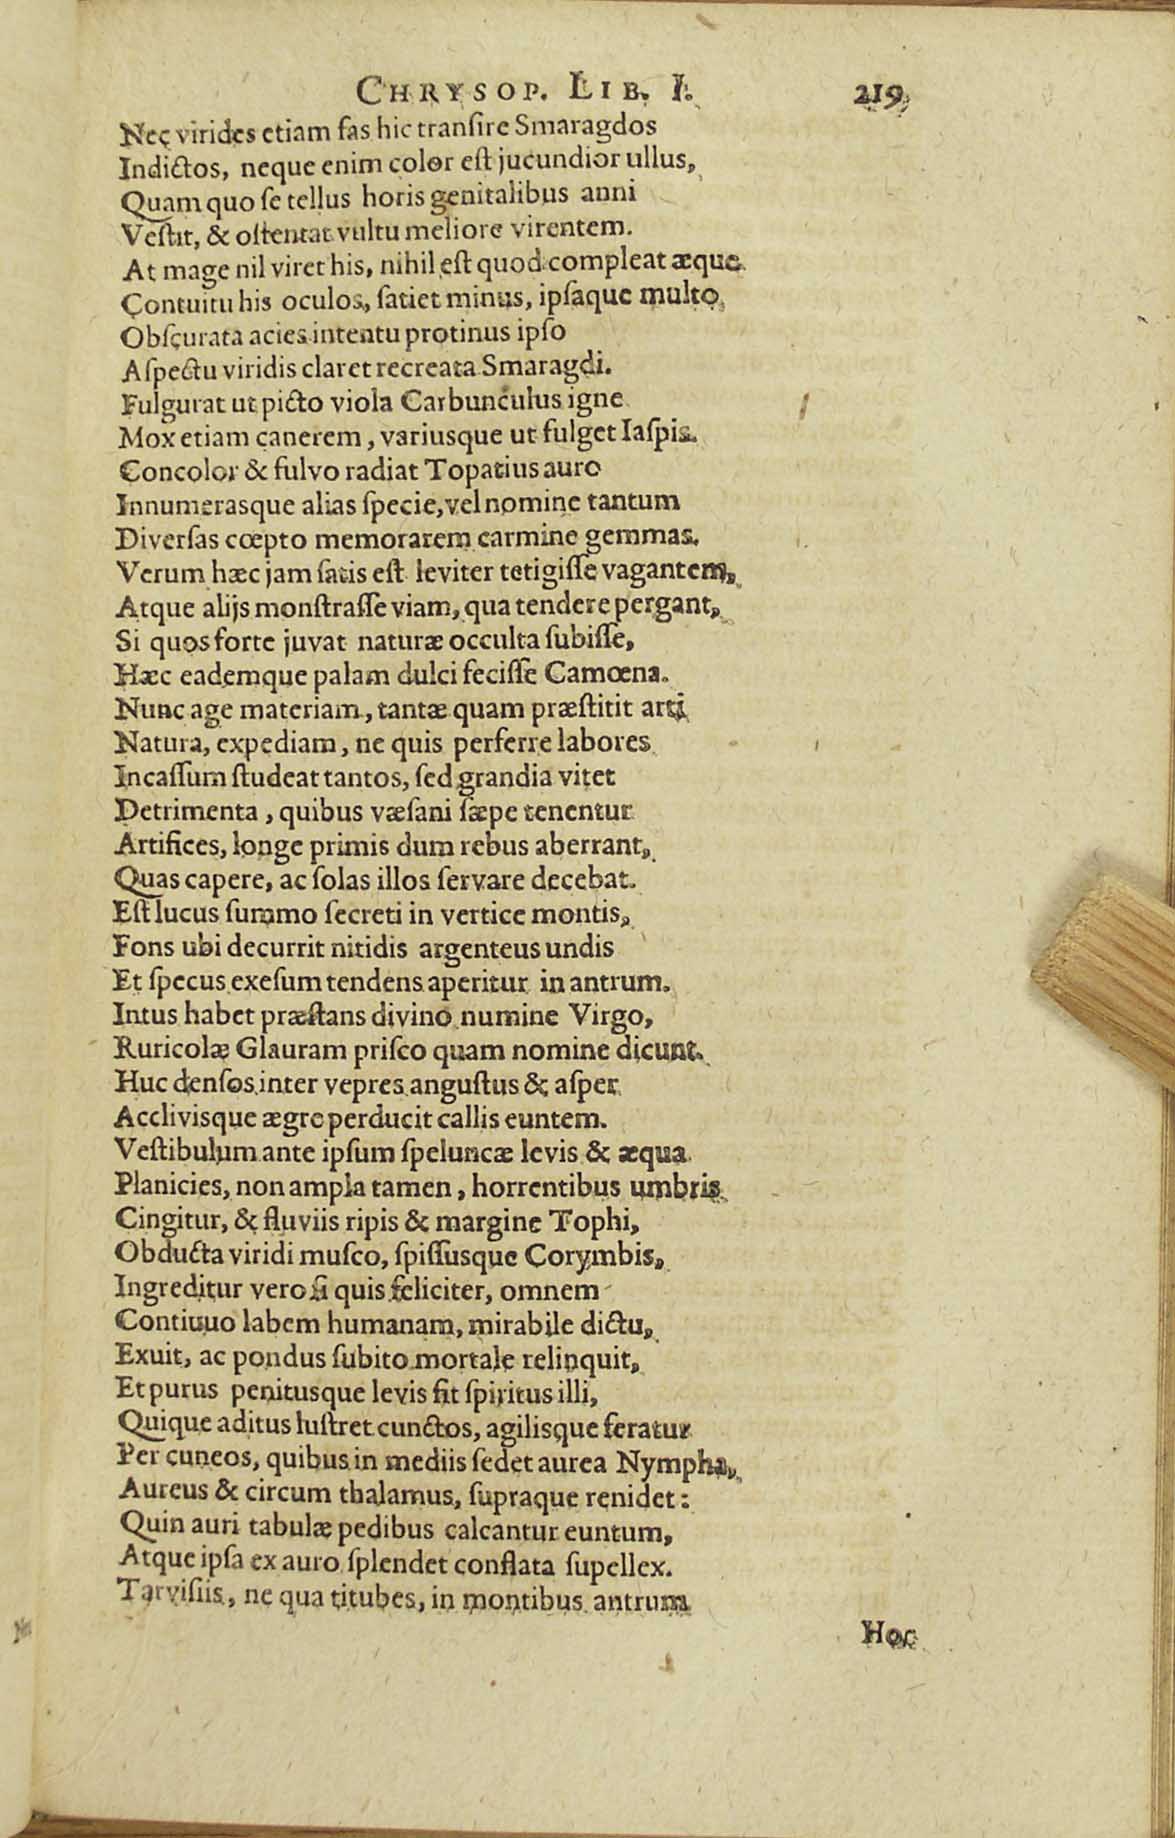 CHRYSOP. LIB. I. 219
Nec virides etiam fas hic tranſire Smaragdos
Indictos, neque enim color eſt jucundior ullus,
Quam quo ſe tellus horis genitalibus anni
Veſtit, & oſtentat vultu meliore virentem.
At mage nil viret his, nihil eſt quod compleat æque
Contuitu his oculos, ſatiet minus, ipſaque multo
Obſcurata acies intentu protinus ipſo
Aſpectu viridis claret recreata Smaragdi.
Fulgurat ut picto viola Carbunculus igne
Mox etiam canerem, variusque ut fulget Iaſpis.
Concolor & fulvo radiat Topatius auro
Innumerasque alias ſpecie, vel nomine tantum
Diverſas cœpto memorarem carmine gemmas.
Verum hæc jam ſatis eſt leviter tetigiſſe vagantem,
Atque alijs monſtraſſe viam, qua tendere pergant,
Si quos forte juvat naturæ occulta ſubiſſe,
Hæc eademque palam dulci feciſſe Camœna.
Nunc age materiam, tantæ quam præſtitit arti
Natura, expediam, ne quis perferre labores
Incaſſum ſtudeat tantos, ſed grandia vitet
Detrimenta, quibus væſani ſæpe tenentur
Artifices, longe primis dum rebus aberrant,
Quas capere, ac ſolas illos ſervare decebat.
Eſt lucus ſummo ſecreti in vertice montis,
Fons ubi decurrit nitidis argenteus undis
Et ſpecus exeſum tendens aperitur in antrum.
Intus habet præſtans divino numine Virgo,
Ruricolæ Glauram priſco quam nomine dicunt.
Huc denſos inter vepres anguſtus & aſper
Acclivisque ægre perducit callis euntem.
Veſtibulum ante ipſum ſpeluncæ levis & æqua
Planicies, non ampla tamen, horrentibus umbris
Cingitur, & fluviis ripis & margine Tophi,
Obducta viridi muſco, ſpiſſusque Corymbis,
Ingreditur vero ſi quis feliciter, omnem
Contiuuo labem humanam, mirabile dictu,
Exuit, ac pondus ſubito mortale relinquit,
Et purus penitusque levis fit ſpiritus illi,
Quique aditus luſtret cunctos, agilisque feratur
Per cuneos, quibus in mediis ſedet aurea Nympha,
Aureus & circum thalamus, ſupraque renidet:
Quin auri tabulæ pedibus calcantur euntum,
Atque ipſa ex auro ſplendet conflata ſupellex.
Tarviſiis, ne qua titubes, in montibus antrum
Hoc